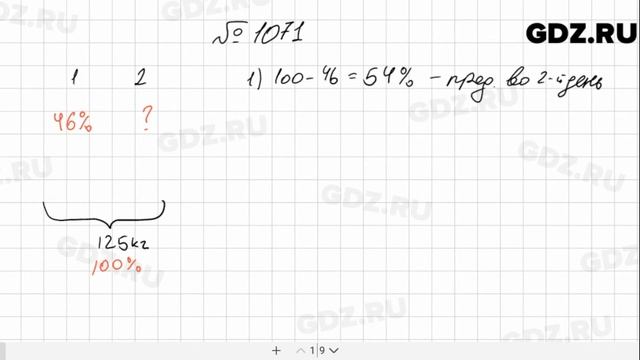 № 1071
GDZ.RU
1 2
1) 100-46=54% - прод. во 2-й день
46% ?
125кг
100%
GDZ.RU
GDZ.RU
GDZ.RU
GDZ.RU
GDZ.RU
GDZ.RU
GDZ.RU
+ 1 9